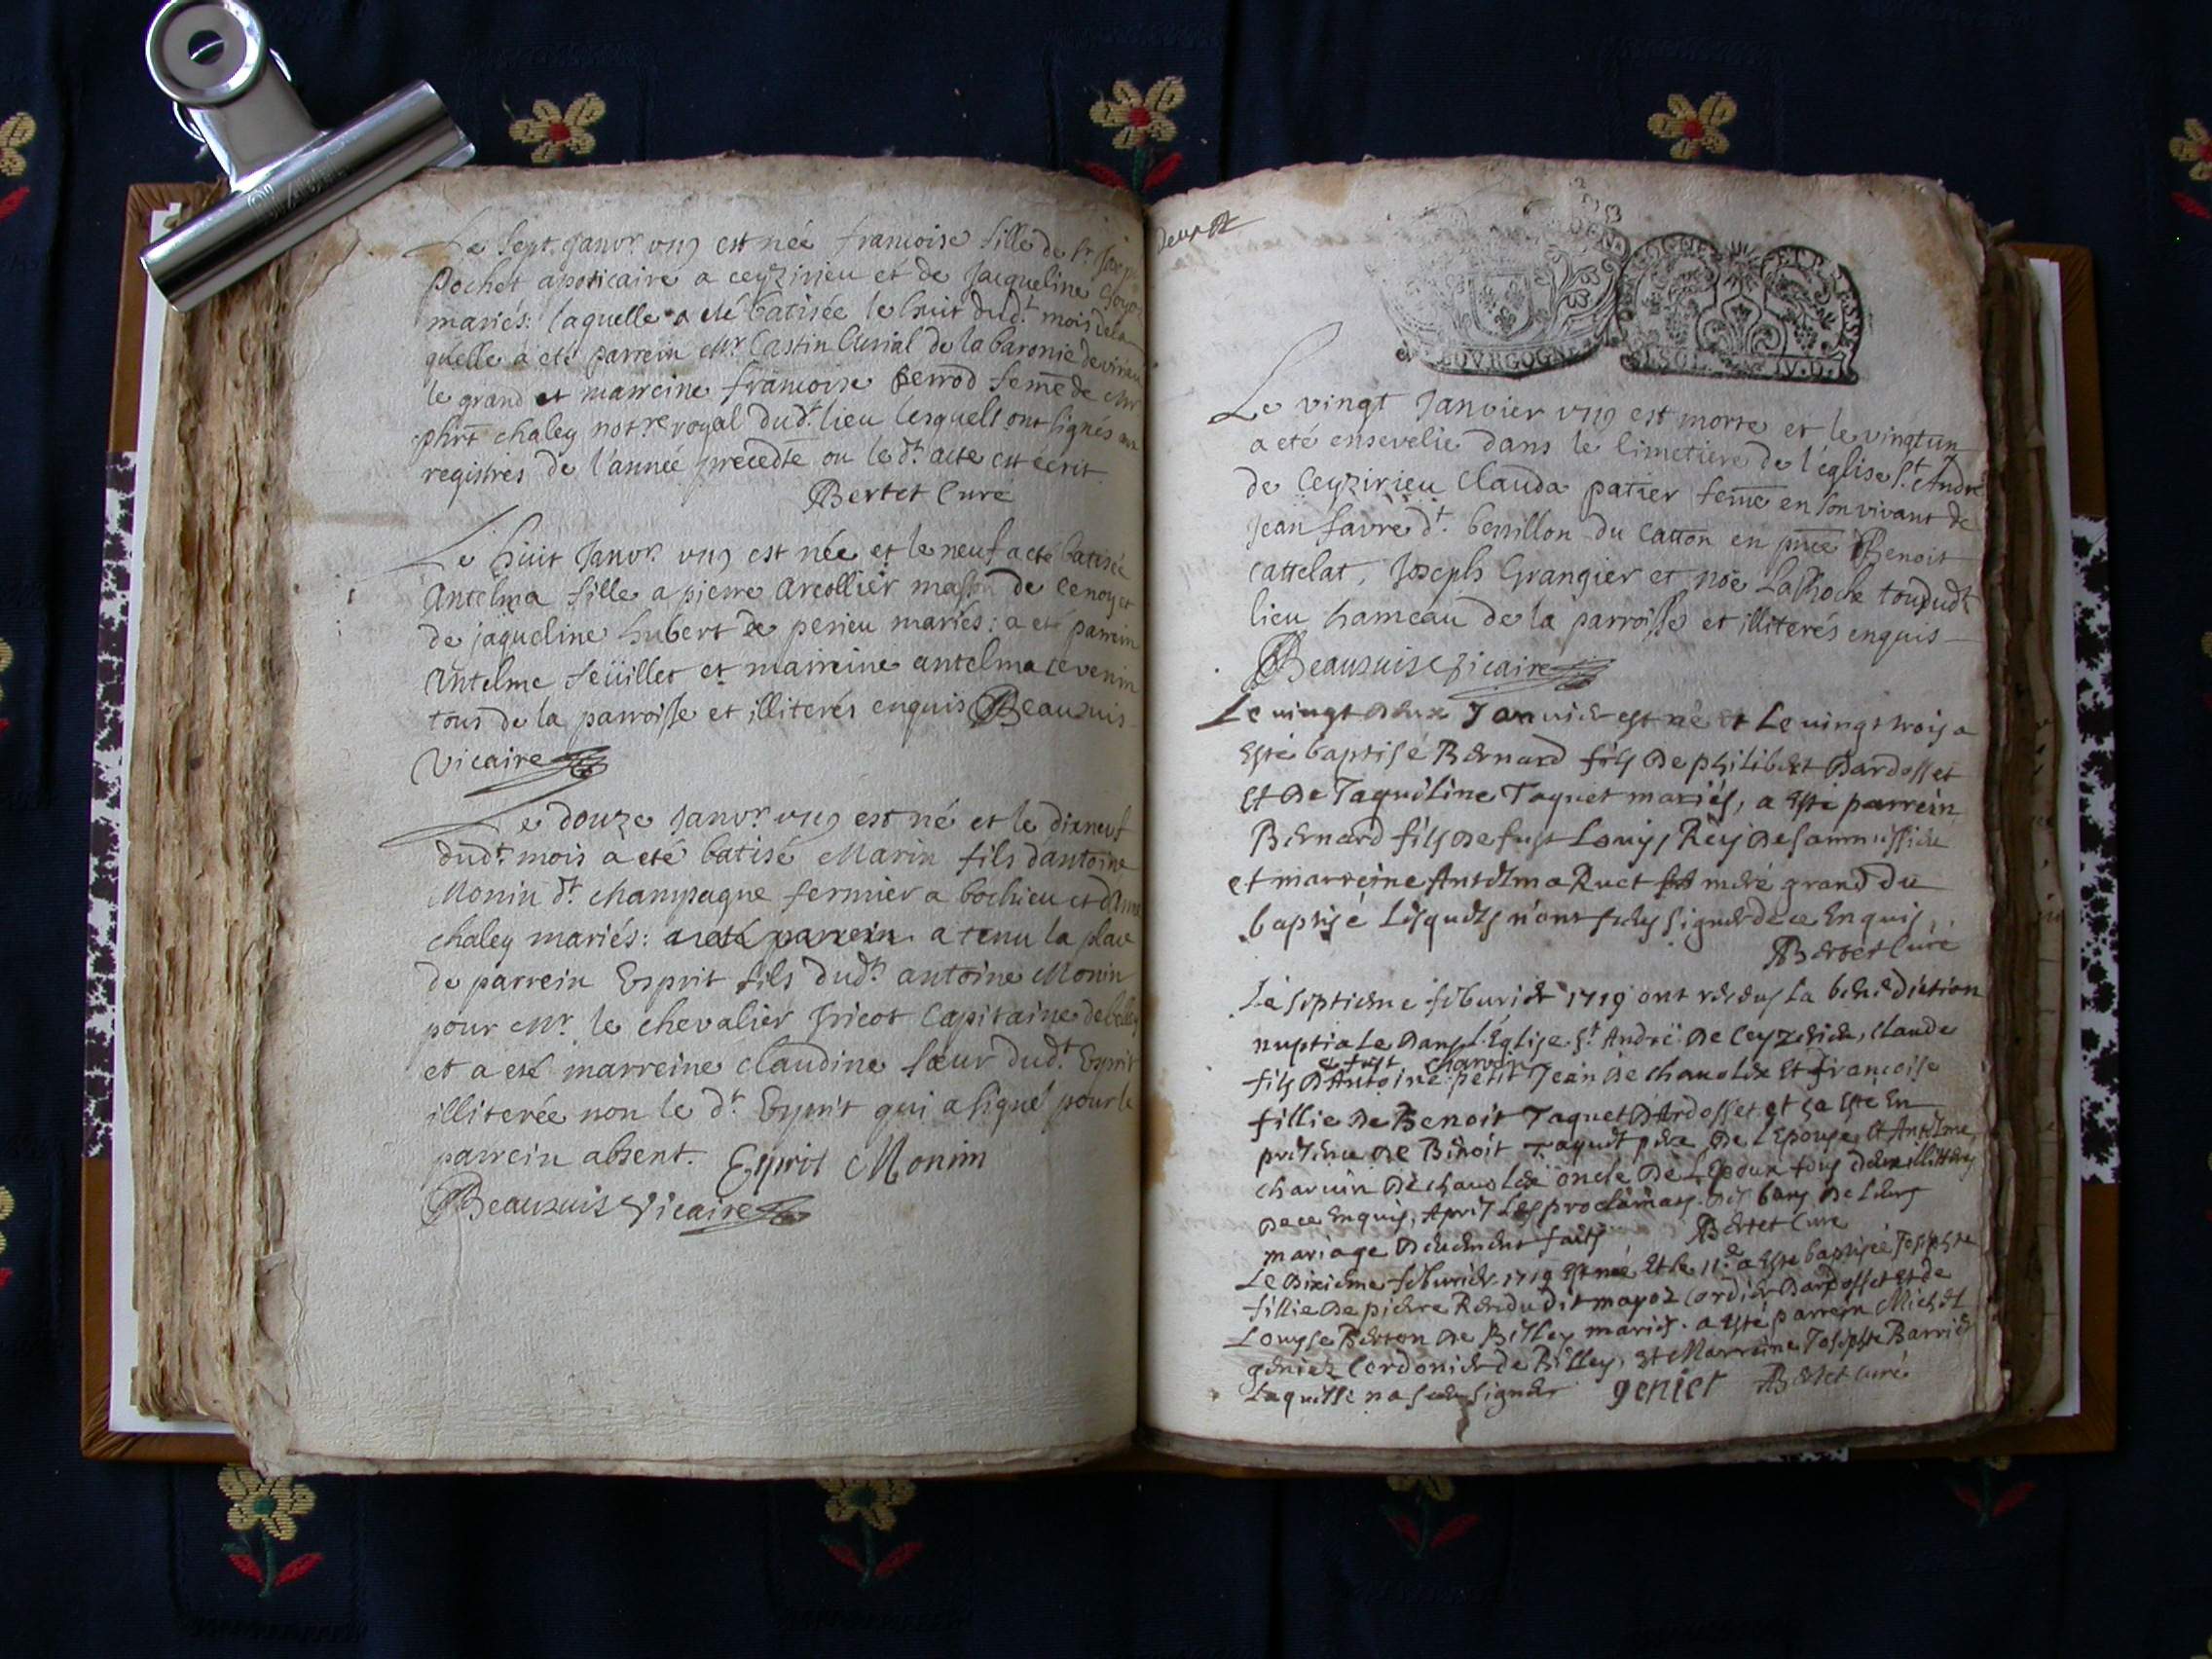 Le sept janvr 1719 est née francoise fille de Sr
Pochet apoticaire a ceyzirieu et de Jacqueline
mariés: laquelle a eté batisée le huit dudt mois de la
quelle a eté parrein Mr Castin Curial de la baronie de virieu
le grand et marreine francoise Perrod feme de Mr
phrt chaley notre royal dudt lieu lesquels ont signés
registres de l'année precedte ou le dt acte est écrit
Bertet Curé
Le huit Janvr 1719 est née et le neuf a eté batisée
Antelma fille a pierre arcollier masson de et
de jaqueline hubert de perieu mariés: a eté parrein
Antelme feüillet et marreine antelma tevenin
tous de la parroisse et illiterés enquis Beauvuis
Vicaire
Le douze Janvr 1719 est né et le dixneuf
dudt mois a eté batisé Marin fils d'antoine
Monin dt champagne fermier a bochieu et d'Anne
chaley mariés: a eté parrein a tenu la place
de parrein Esprit fils dudt antoine Monin
pour Mr le chevalier Capitaine de
et a eté marreine claudine sœur dudt Esprit
illiterée non le dt Esprit qui a signé pour le
parrein absent. Esprit Monim
Beauvuis Vicaire
BOVRGOGNE
Le vingt Janvier 1719 est morte et le vingtun
a eté ensevelie dans le cimetiere de l'église St André
de Ceyzirieu Clauda patier feme en son vivant de
Jean favre dt du Catton en pnce Benoit
Cattelat, Joseph Grangier et noë LaRoche tous dudt
lieu hameau de la parroisse et illiterés enquis
Beauvuis Vicaire
Le vingt deux Janvier est né et Le vingt trois a
esté baptisé Bernard fils de philibert Dardosset
et de Jaqueline Jaquet mariés, a esté parrein
Bernard fils de fust Louys Rey de
et marreine Antelma Ruet André grand du
baptisé Lesquels n'ont sceus signer de ce Enquis,
Bertet Curé
Le septieme feburier 1719 ont receus La benediction
nuptiale dans L'Eglise St André de Ceyzerieu, claude
fust charvin
fils d'Antoine petit Jean de chavolex Et francoise
fillie de Benoit Jaquet d'Ardosset et ça esté En
presence de Benoit Jaquet pere de L'Epouse, Et Antelme
charvin de chavolex oncle de L'Epoux tous deux illitterés
de ce Enquis, Apres Les proclamas des bans de Leurs
mariage deuement faits Bertet Curé
Le dixieme feburier 1719 Est née Et le 11e a Esté baptisée Josephte
fillie de pierre dit mayoz cordier Dardosset Et de
Louyse Berton de Billey mariés. a esté parrein Michel
geniez Cordonier de Billey, Et Marreine Josephte Barrier
Laquelle na sceu signer geniet Bertet Curé